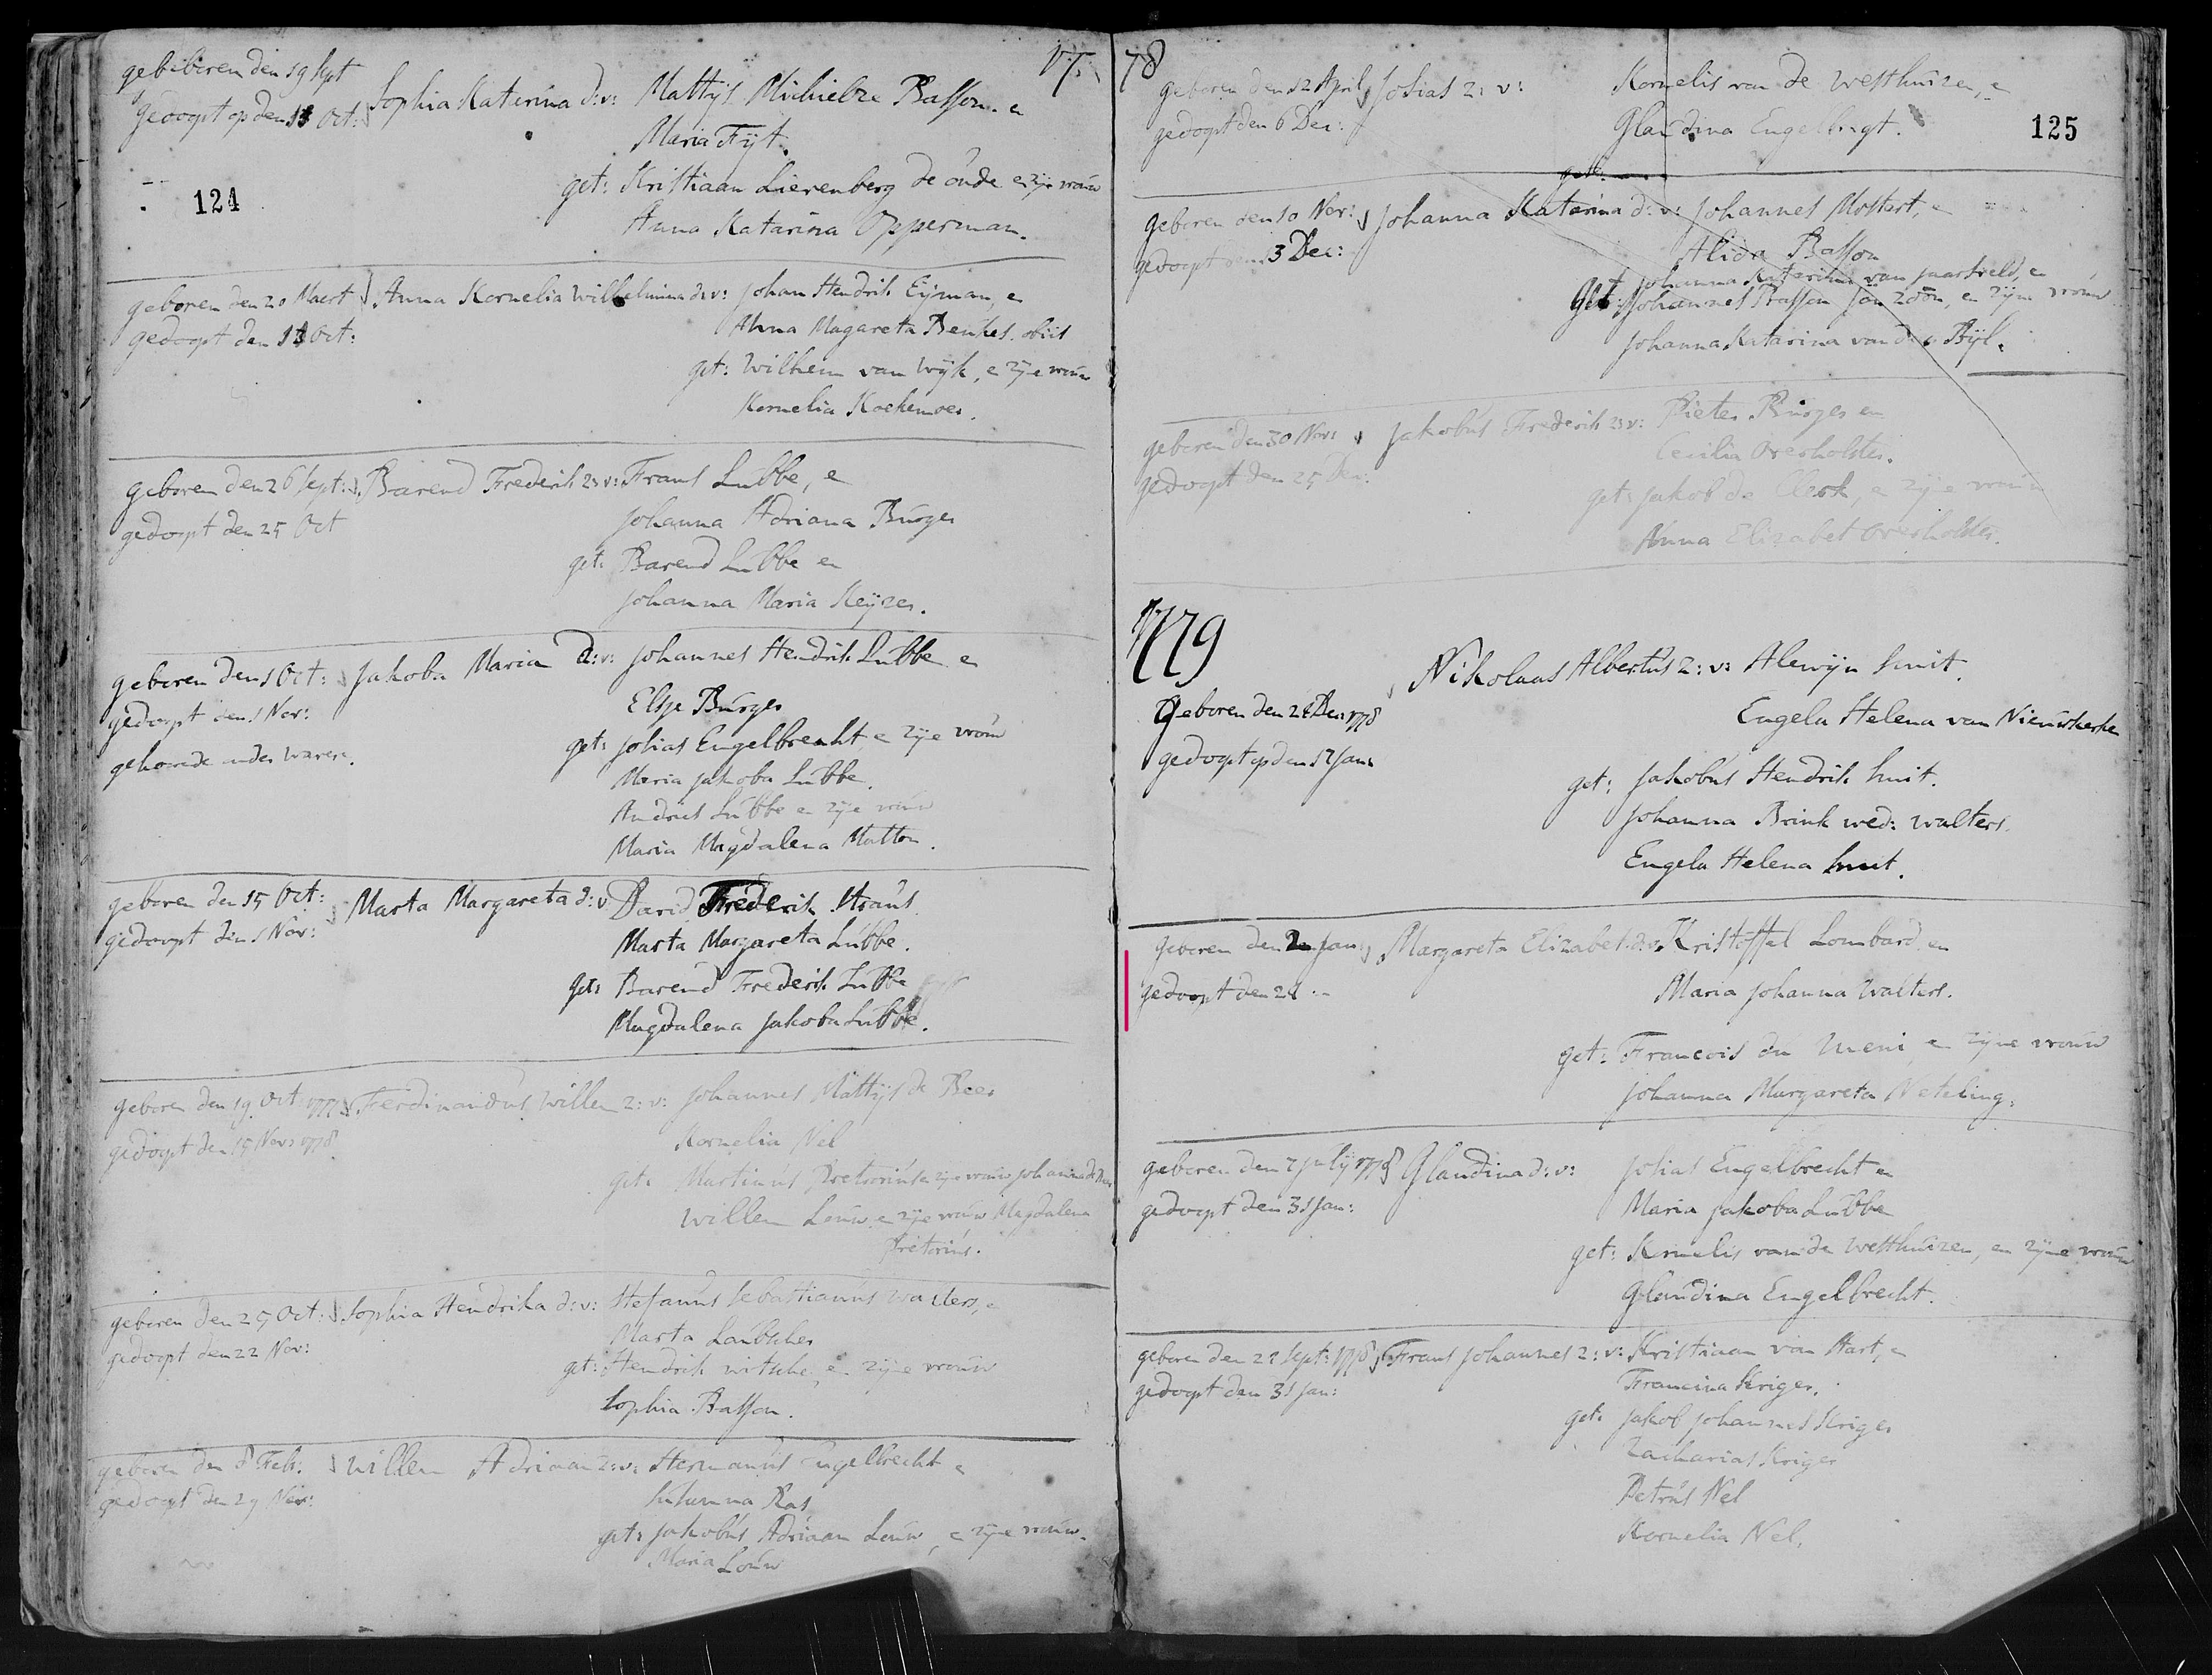 17
gebeboren den 19 Sept
gedoopt op den 11 Oct:
Sophia Katerina d:v: Mattys Michielze Basson. e
Maria Fyt.
get: Kristiaan Lierenberg de oude e zije vrouw
Anna Katarina Opperman.
124
geboren den 20 Maert Anna Kornelia Wilhelmina d:v: Johan Hendrik Eyman, e
gedoopt den 11 Oct:
Anna Magareta Benkes. obiit
get: Wilhem van Wyk, e zije vrouw
Kornelia Koekemoer.
geboren den 26 Sept: Barend Frederik z:v: Frans Lubbe, e
gedoopt den 25 Oct
Johanna Adriana Burger
get: Barend Lubbe en
Johanna Maria Keyzer.
geboren den 1 Oct: Jakoba Maria d:v: Johannes Hendrik Lubbe e
gedoopt den 1 Nov:
Elsje Burger
get: Josias Engelbrecht e zije vrouw
Maria Jakoba Lubbe.
Andries Lubbe e zije vrouw
Maria Magdalena Mutton.
geboren den 15 Oct: Marta Margareta d:v: David Frederik Straus
gedoopt den 1 Nov:
Marta Margareta Lubbe.
get: Barend Frederik Lubbe
Magdalena Jakoba Lubbe.
geboren den 19 Oct: 1777 Ferdinandus Willem z:v: Johannes Mattys de Beer
gedoopt den 15 Nov: 1778
Kornelia Nel
get: Martinus Pretorius e zije vrouw Johanna de Beer
Willem Louw e zije vrouw Magdalena
Pretorius.
geboren den 25 Oct: Sophia Hendrika d:v: Stefanus Sebastianus Walters, e
gedoopt den 22 Nov:
Marta Laubscher
get: Hendrik e zijne vrouw
Sophia Basson.
geboren den 8 Feb: Willem Adriaan z:v: Hermanus Engelbrecht e
gedoopt den 29 Nov:
Susanna Ras
get: Jakobus Adriaan Louw, e zije vrouw.
Maria Louw
78
geboren den 12 April Josias z: v: Kornelis van de Westhuizen, e
gedoopt den 6 Dec:
Glaudina Engelbregt.
125
get:
geboren den 10 Nov: Johanna Katarina d: v: Johannes Mostert, e
gedoopt den 13 Dec:
Alida Basson
get Johanna Katarina van Jaarsveld, e
get: Johannes Basson Jan zoon, e zijne vrouw
Johanna Katarina van der Byl.
geboren den 30 Nov: Jakobus Frederik z:v: Pieter Burger en
gedoopt den 25 Dec:
Cecilia Overholster.
get: Jakob de Clerk, e zije vrouw
Anna Elizabet Overholster.
1779
Nikolaas Albertus z: v: Alewijn Smit.
Geboren den 21 Dec: 1778
Engela Helena van Nieuwkerken
gedoopt op den 17 Jan:
get: Jakobus Hendrik Smit.
Johanna Brink wed: Walters.
Engela Helena Smit.
geboren den 2 Jan: Margareta Elizabet d:v: Kristoffel Lombard en
gedoopt den 24
Maria Johanna Walters.
get: Francois du e zijne vrouw
Johanna Margareta Neteling.
geboren den 7 July 1778 Glaudina d: v: Josias Engelbrecht en
gedoopt den 31 Jan:
Maria Jakoba Lubbe
get: Kornelis van de Westhuizen, en zijne vrouw
Glaudina Engelbrecht.
geboren den 22 Sept: 1778 Frans Johannes z: v: Kristiaan van Aart, e
gedoopt den 31 Jan:
Francina Kriger.
get: Jakob Johannes Kriger
Zacharias Kriger
Petrus Nel
Kornelia Nel.